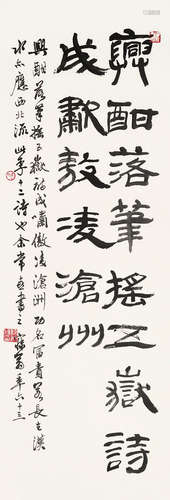 興酣落筆搖五嶽詩
成歗敖凌滄州
興酣落筆搖五嶽詩成嘯傲淩滄洲功名富貴若長在漢
水亦應西北流此李十二詩也余常喜書之
年六十三